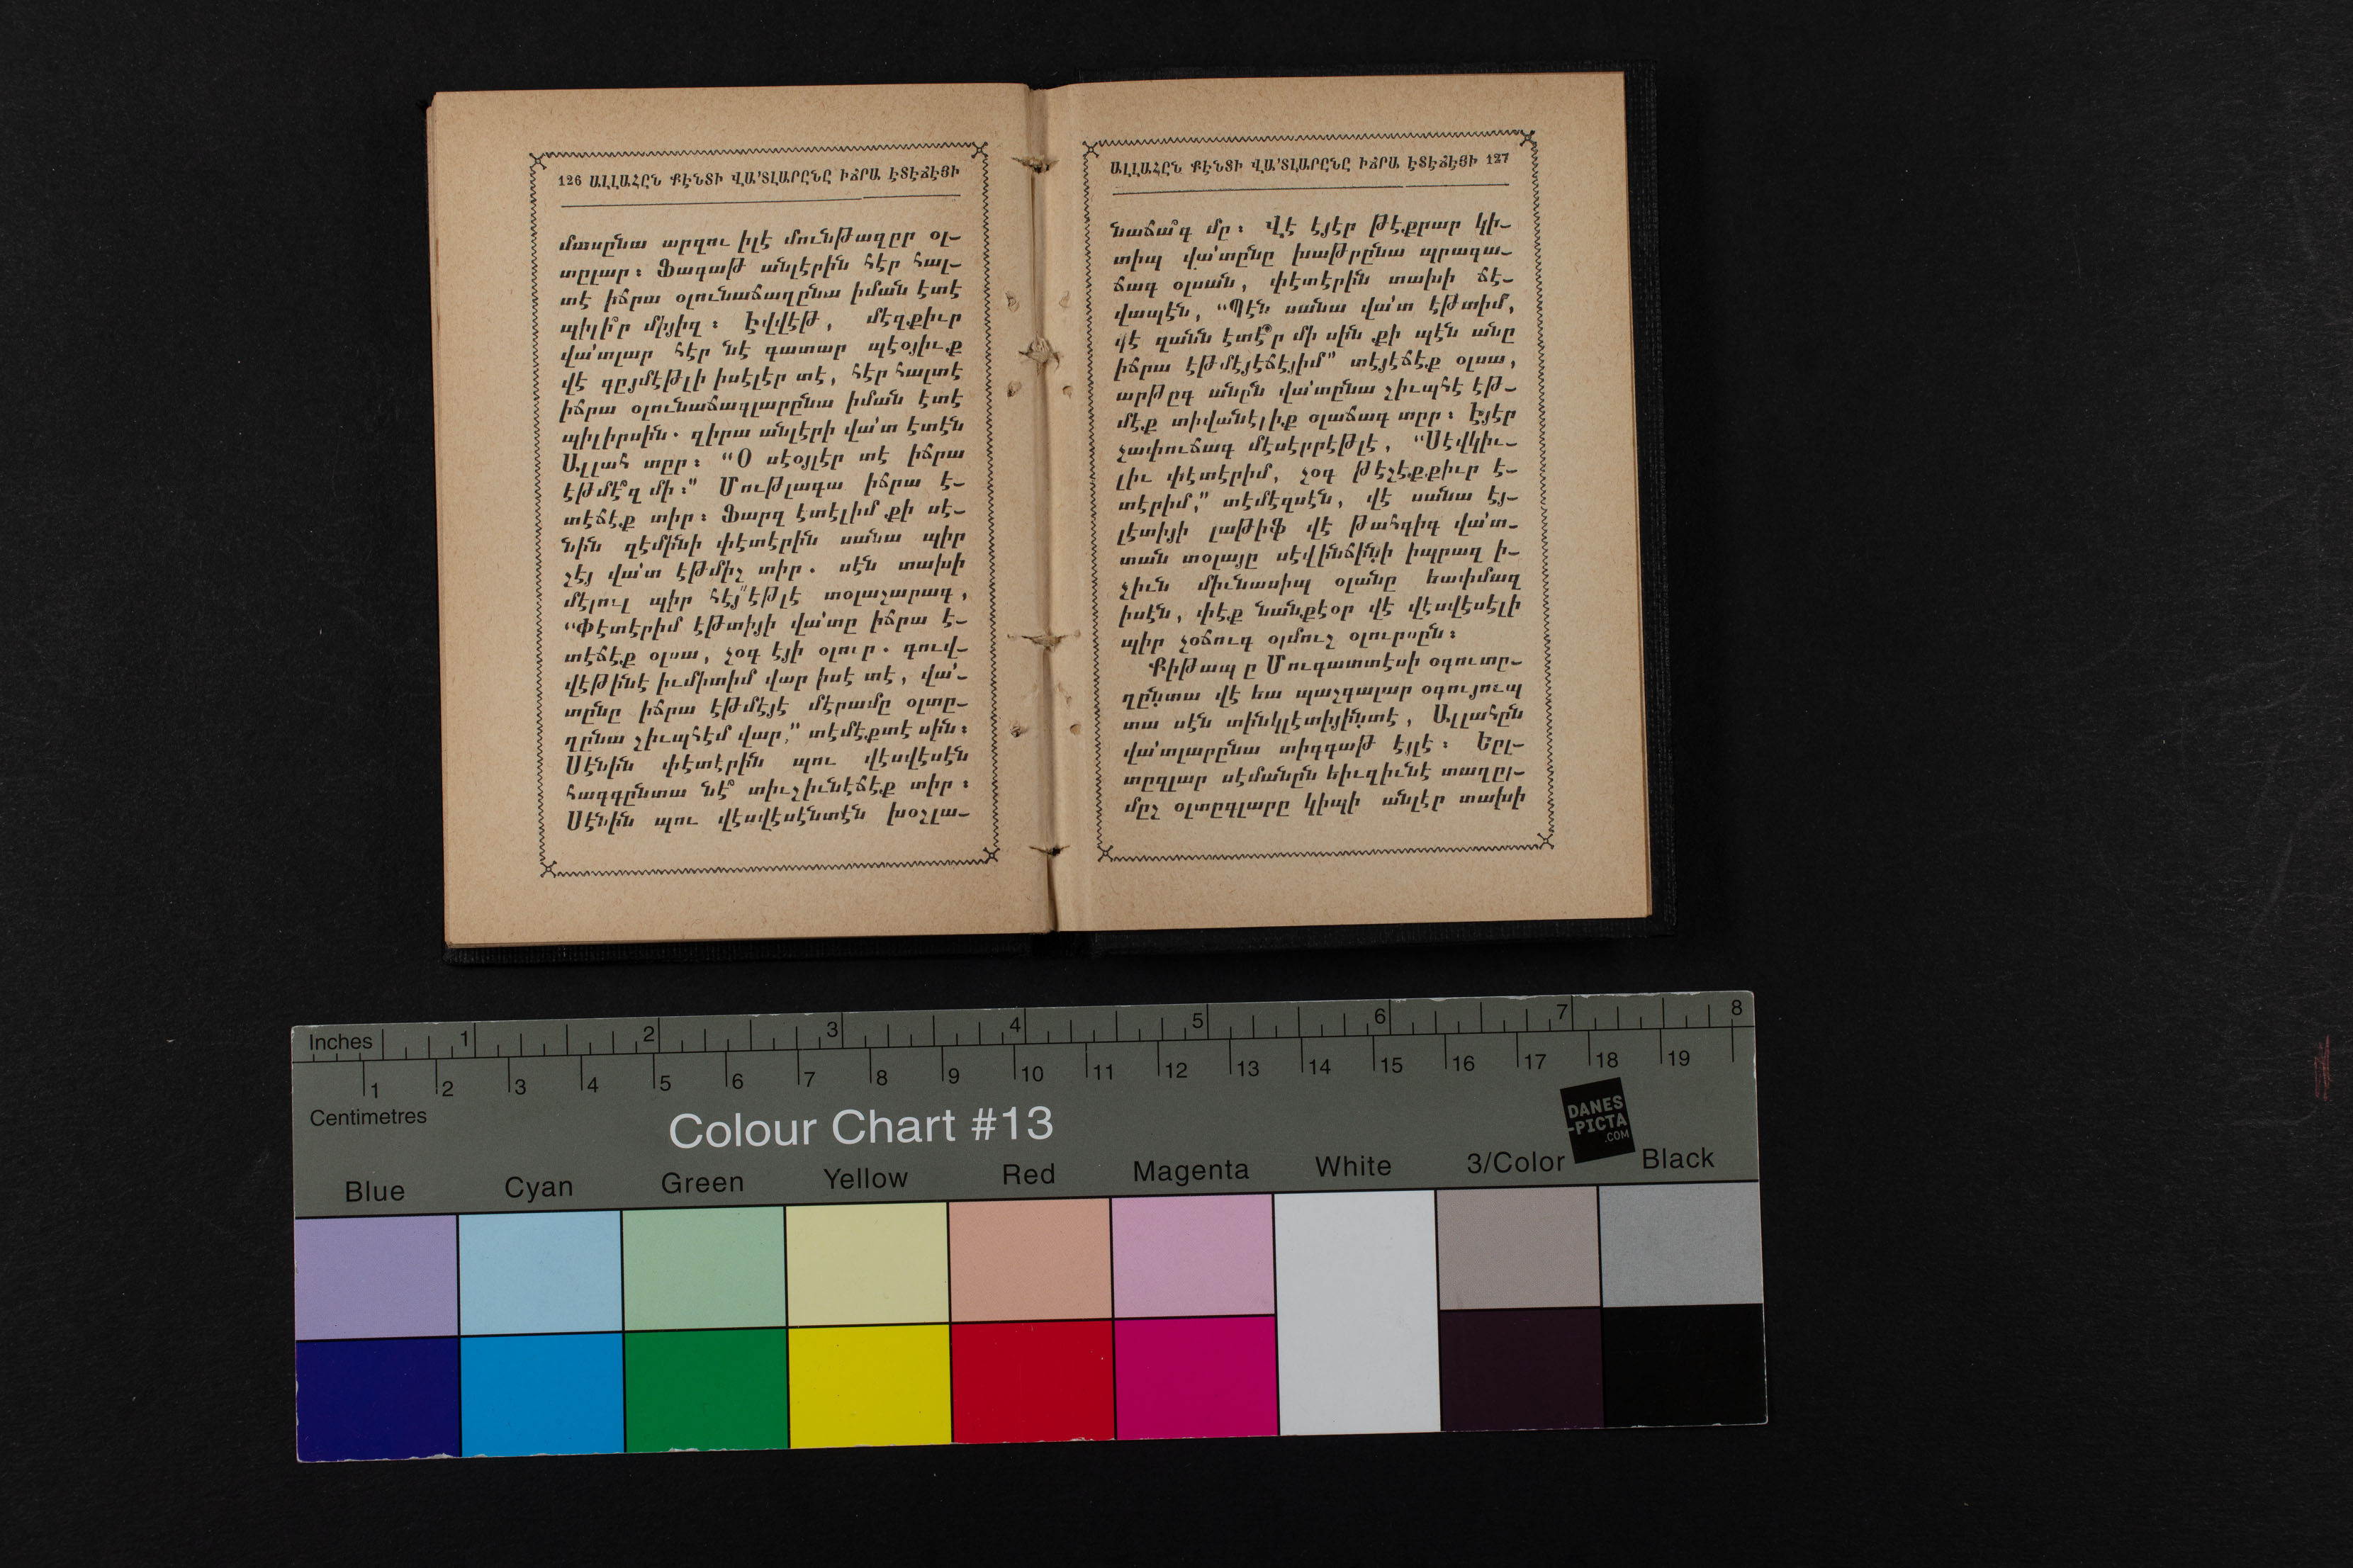 126 ԱԼԼԱՀԸՆ ՔԷՆՏԻ ՎԱ՚ՏԼԱՐԸՆԸ ԻՃՐԱ ԷՏԷՃԷՅԻ
մասընա արզու իլէ մունթազըր օլ-
տըլար։ Ֆագաթ անլէրին հէր հալ-
տէ իճրա օլունաճաղընա իման էտէ
պիլի՞ր միյիզ։ Էվվէթ, մէզքիւր
վա՚տլար հէր նէ գատար պէօյիւք
վէ գըյմէթլի իսէլէր տէ, հէր հալտէ
իճրա օլունաճագլարընա իման էտէ
պիլիրսին. զիրա անլէրի վա՚տ էտէն
Ալլահ տըր։ “Օ սէօյլէր տէ իճրա
էթմէ՞զ մի։” Մութլագա իճրա է-
տէճէք տիր։ Ֆարզ էտէլիմ քի սէ-
նին զէմինի փէտէրին սանա պիր
շէյ վա՚տ էթմիշ տիր. սէն տախի
մէլուլ պիր հէյ՚՚էթլէ տօլաշարագ,
“Փէտէրիմ էթտիյի վա՚տը իճրա է-
տէճէք օլսա, չօգ էյի օլուր. գուվ-
վէթինէ իւմիտիմ վար իսէ տէ, վա՚-
տընը իճրա էթմէյէ մէրամը օլտը-
ղընա շիւպհէմ վար,” տէմէքտէ սին։
Սէնին փէտէրին պու վէսվէսէն
հագգընտա նէ՞ տիւշիւնէճէք տիր։
Սէնին պու վէսվէսէնտէն խօշլա-
ԱԼԼԱՀԸՆ ՔԷՆՏԻ ՎԱ՚ՏԼԱՐԸՆԸ ԻՃՐԱ ԷՏԷՃԷՅԻ 127
նաճա՞գ մը։ Վէ էյէր թէքրար կի-
տիպ վա՚տընը խաթրընա պրագա-
ճագ օլսան, փէտէրին տախի ճէ-
վապէն, “Պէն սանա վա՚տ էթտիմ,
վէ զանն էտէ՞ր մի սին քի պէն անը
իճրա էթմէյէճէյիմ” տէյէճէք օլսա,
արթըգ անըն վա՚տընա շիւպհէ էթ-
մէք տիվանէլիք օլաճագ տըր։ Էյէր
չափուճագ մէսէրրէթլէ, “Սէվկիւ-
լիւ փէտէրիմ, չօգ թէշէքքիւր է-
տէրիմ,” տէմէզսէն, վէ սանա էյ-
լէտիյի լաթիֆ վէ թահգիգ վա՚տ-
տան տօլայը սէվինճինի իպրազ ի-
չիւն միւնասիպ օլանը եափմազ
իսէն, փէք նանքէօր վէ վէսվէսէլի
պիր չօճուգ օլմուշ օլուրսըն։
Քիթապ ը Մուգատտէսի օգուտը-
ղընտա վէ եա պաշգալար օգույուպ
տա սէն տինկլէտիյինտէ, Ալլահըն
վա՚տլարընա տիգգաթ էյլէ։ Եըլ-
տըզլար սէմանըն եիւզիւնէ տաղըլ-
մըշ օլտըգլարը կիպի անլէր տախի
Inches 1 2 3 4 5 6 7 8
1 2 3 4 5 6 7 8 9 10 11 12 13 14 15 16 17 18 19
Centimetres
Colour Chart #13
DANES
-PICTA
.COM
Blue Cyan Green Yellow Red Magenta White 3/Color Black